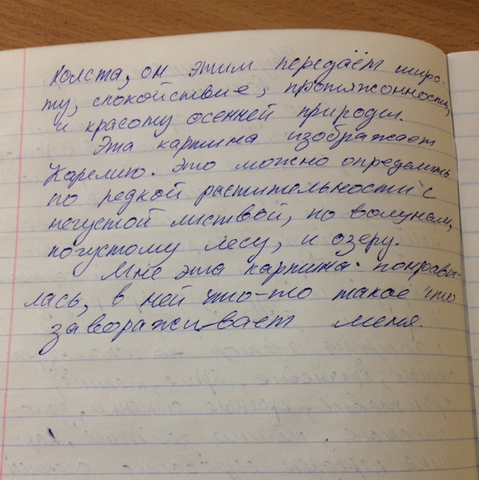 холста, он этим передаём широ-
ту, спокойствие, протяжонность,
и красоту осенней природы.
Эта картина изображает
Карелию. Это можно определить
по редкой растительности с
негустой листвой, по валунам,
погустому лесу, и озеру.
Мне эта картина понрави-
лась, в ней что-то такое что
завораживает меня.